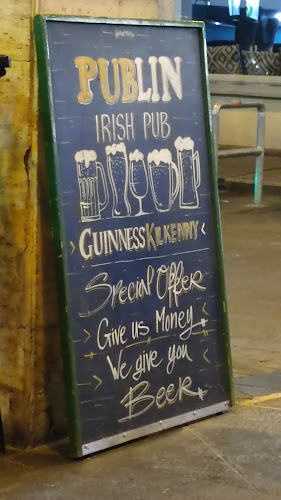 PUBLIN
IRISH PUB
GUINNESS KILKENNY
Special Offer
Give us Money
We give you
Beer